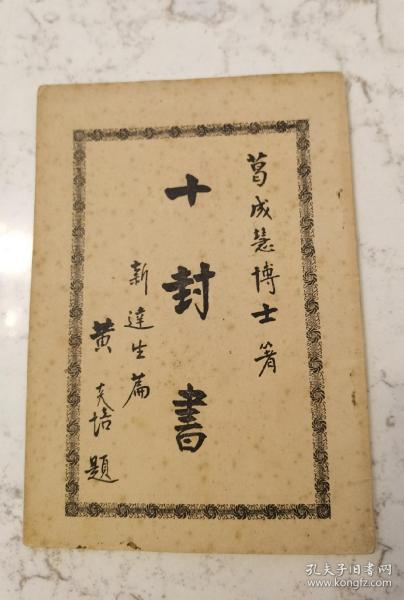 葛成慧博士著
十封書
新達生篇
黄炎培題
孔夫子旧书网
www.kongfz.com